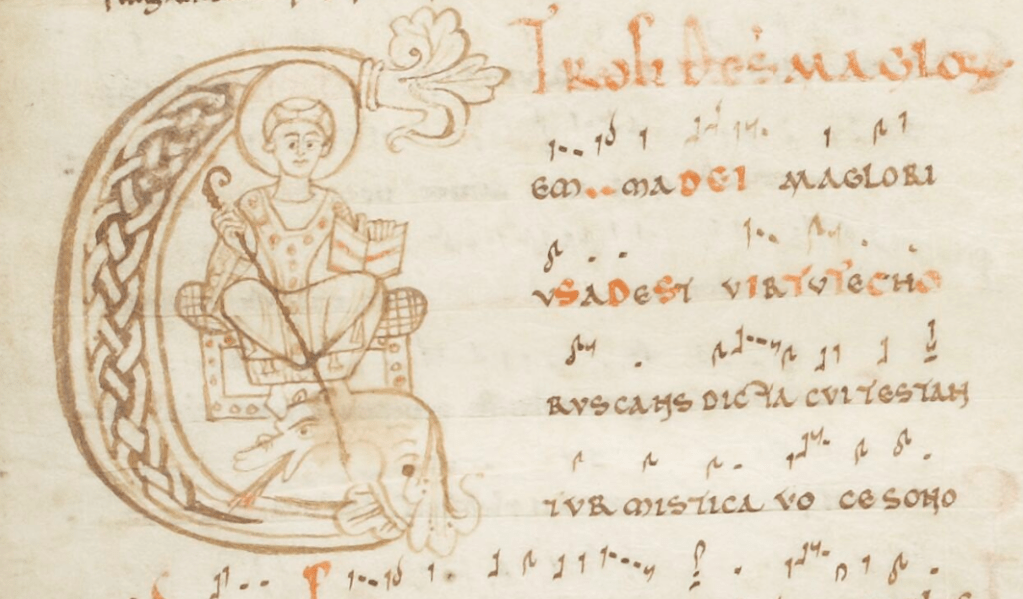 MAGLOR
GEM MA DEI MAGLORI
VS ADEST VIRTVTE CHO
RVSCANS DICTA CVI TESTAN
TVR MISTICA VO CE SONO